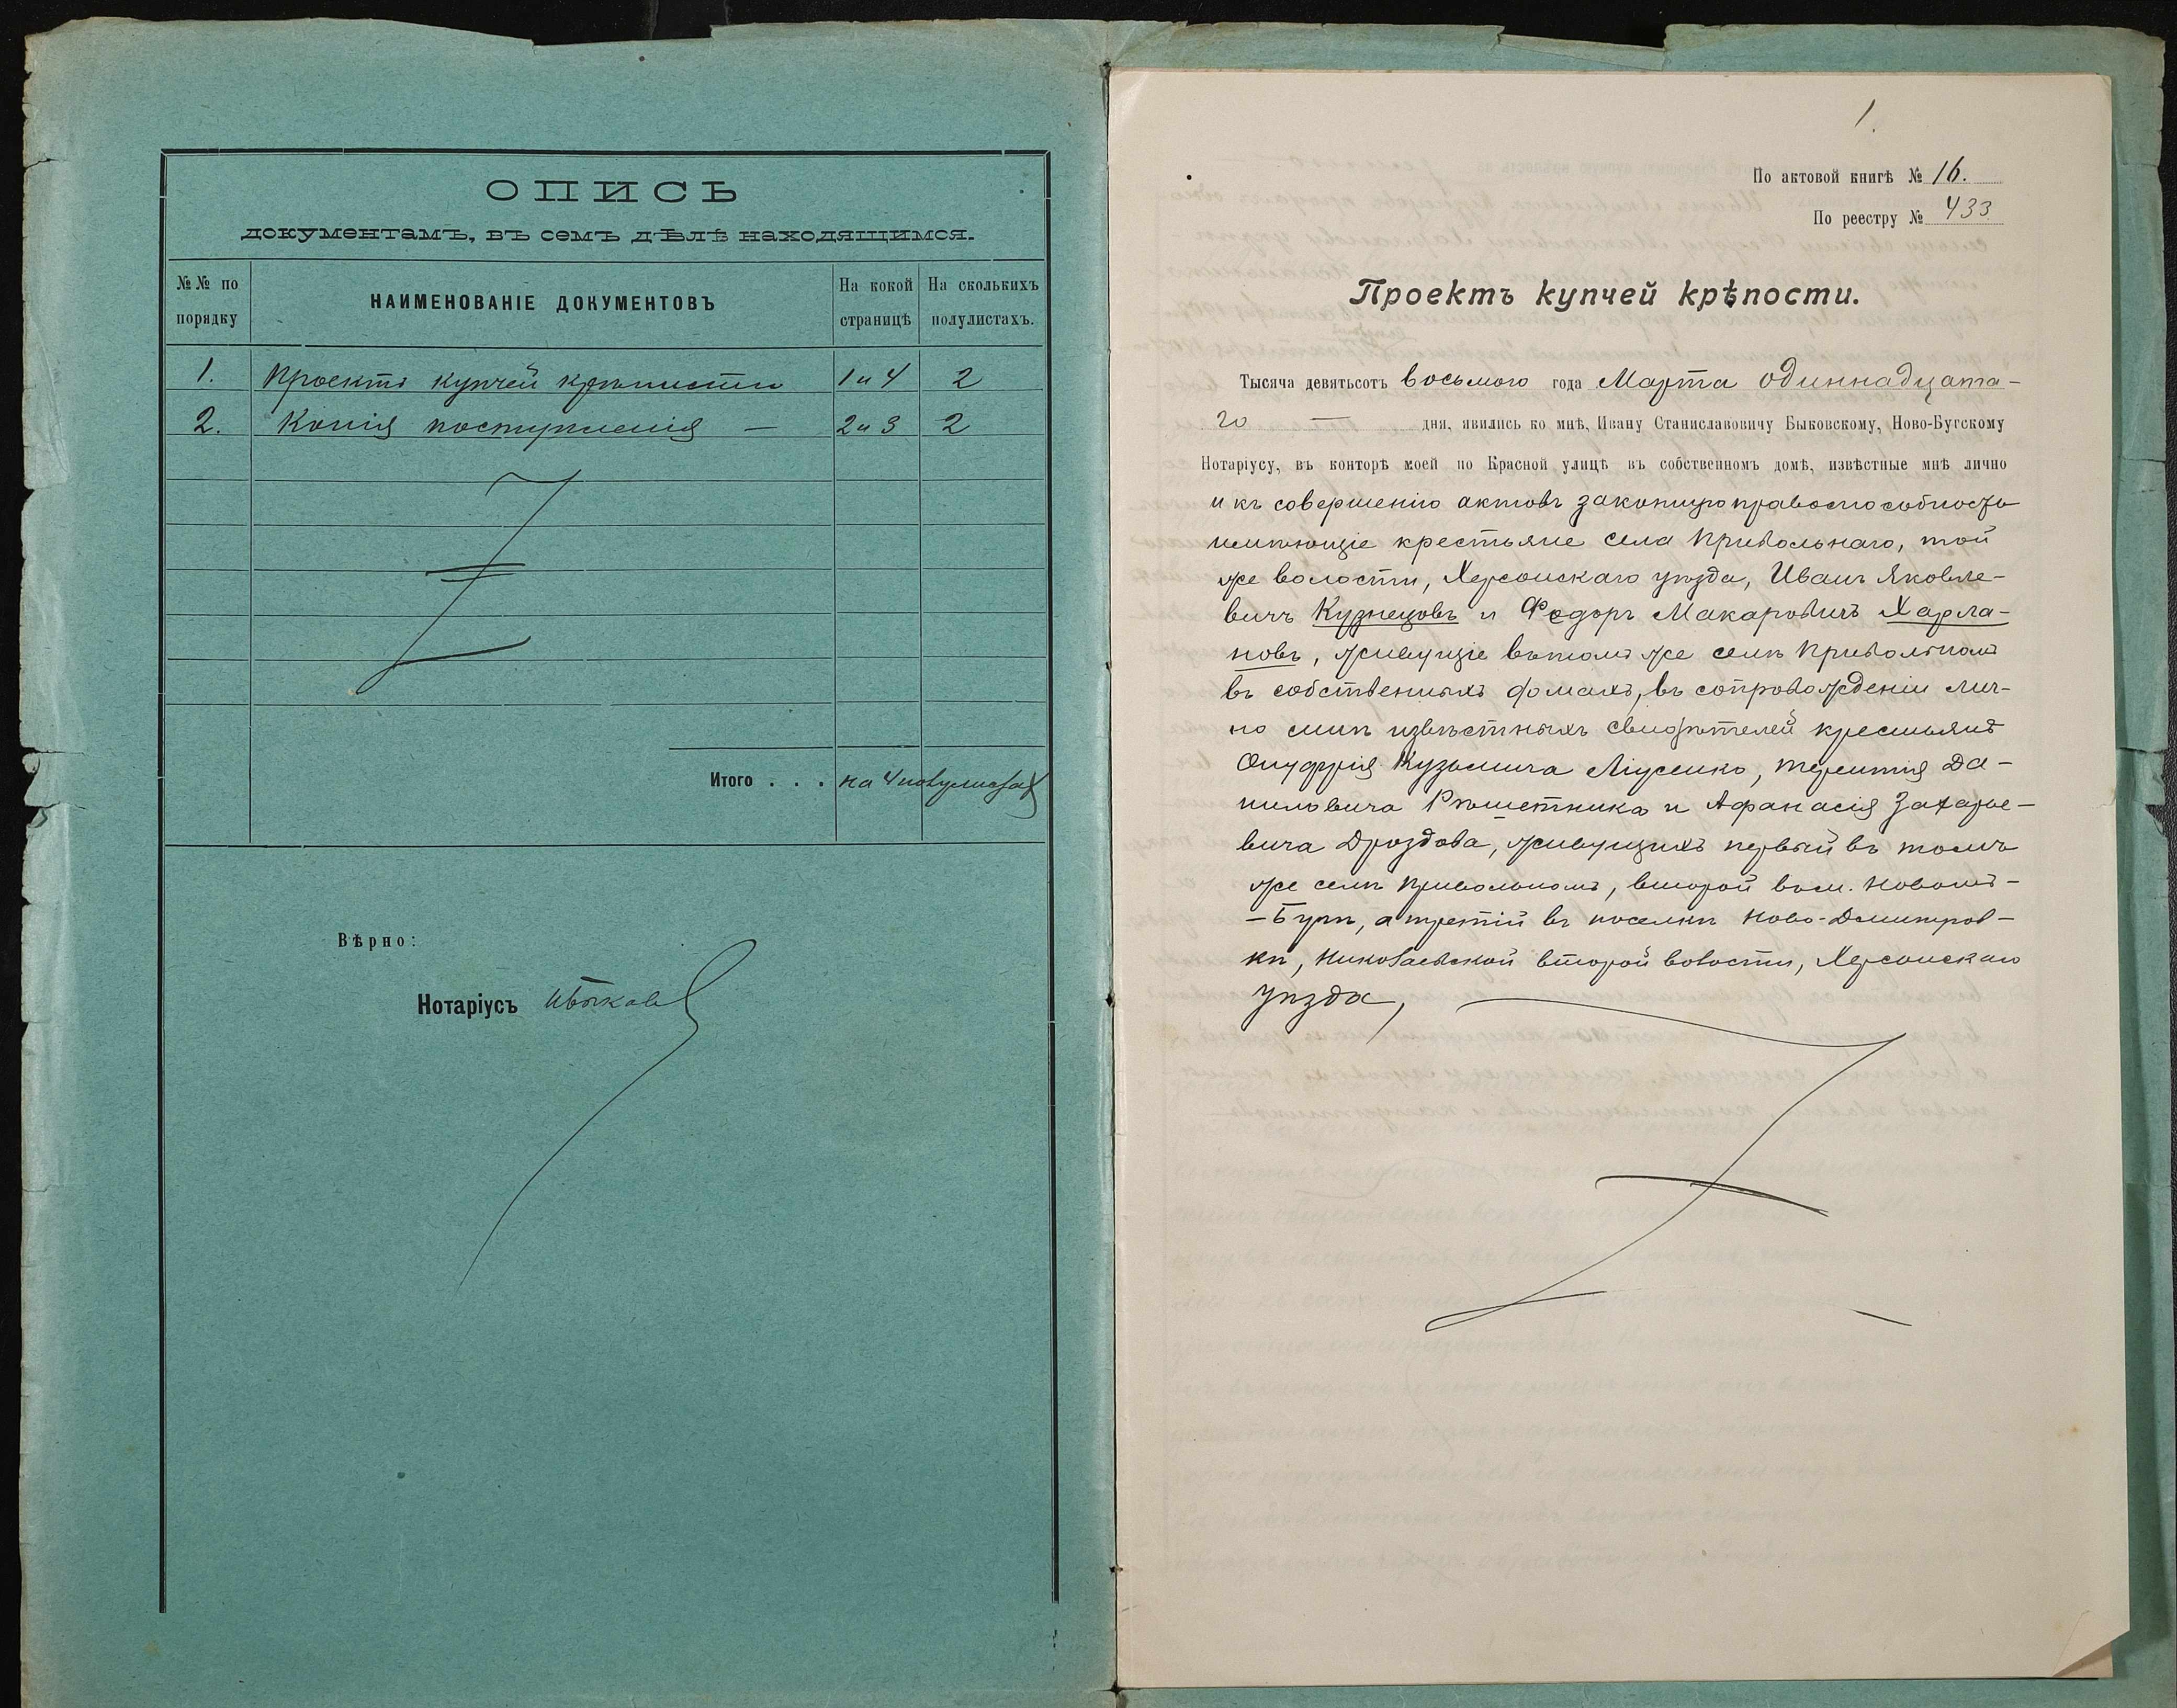 ОПИСЬ
документамъ, въ семъ дѣлѣ находящимся.
№№ по порядку
НАИМЕНОВАНІЕ ДОКУМЕНТОВЪ
На кокой страницѣ
На сколькихъ полулистахъ.
1. Проектъ купчей крѣпости 1 и 4 2
2. Копія поступленія — 2 и 3 2
Итого . . . на 4 полулистах
Вѣрно:
Нотаріусъ
1.
По актовой книгѣ № 16.
По реестру № 433
Проектъ купчей крѣпости.
Тысяча девятьсотъ восьмого года Марта одиннадцата-
го — дня, явились ко мнѣ, Ивану Станиславовичу Быковскому, Ново-Бугскому
Нотаріусу, въ конторѣ моей по Красной улицѣ въ собственномъ домѣ, извѣстные мнѣ лично
и къ совершенію актовъ законную правоспособность
имѣющіе крестьяне села Привольнаго, той
же волости, Херсонскаго уѣзда, Иванъ Яковле-
вичъ Кузнецовъ и Федоръ Макаровичъ Харла-
новъ, живущіе въ томъ же селѣ Привольномъ
въ собственныхъ домахъ, въ сопровожденіи лич-
но мнѣ извѣстныхъ свидѣтелей крестьянъ
Онуфрія Кузьмича Ліусенко, Терентія Да-
ниловича Рѣшетника и Афанасія Захарье-
вича Дроздова, живущихъ первый въ томъ
же селѣ Привольномъ, второй въ м. Новомъ-
-Бугѣ, а третій въ поселкѣ Ново-Дмитров-
кѣ, Николаевской второй волости, Херсонскаго
уѣзда,